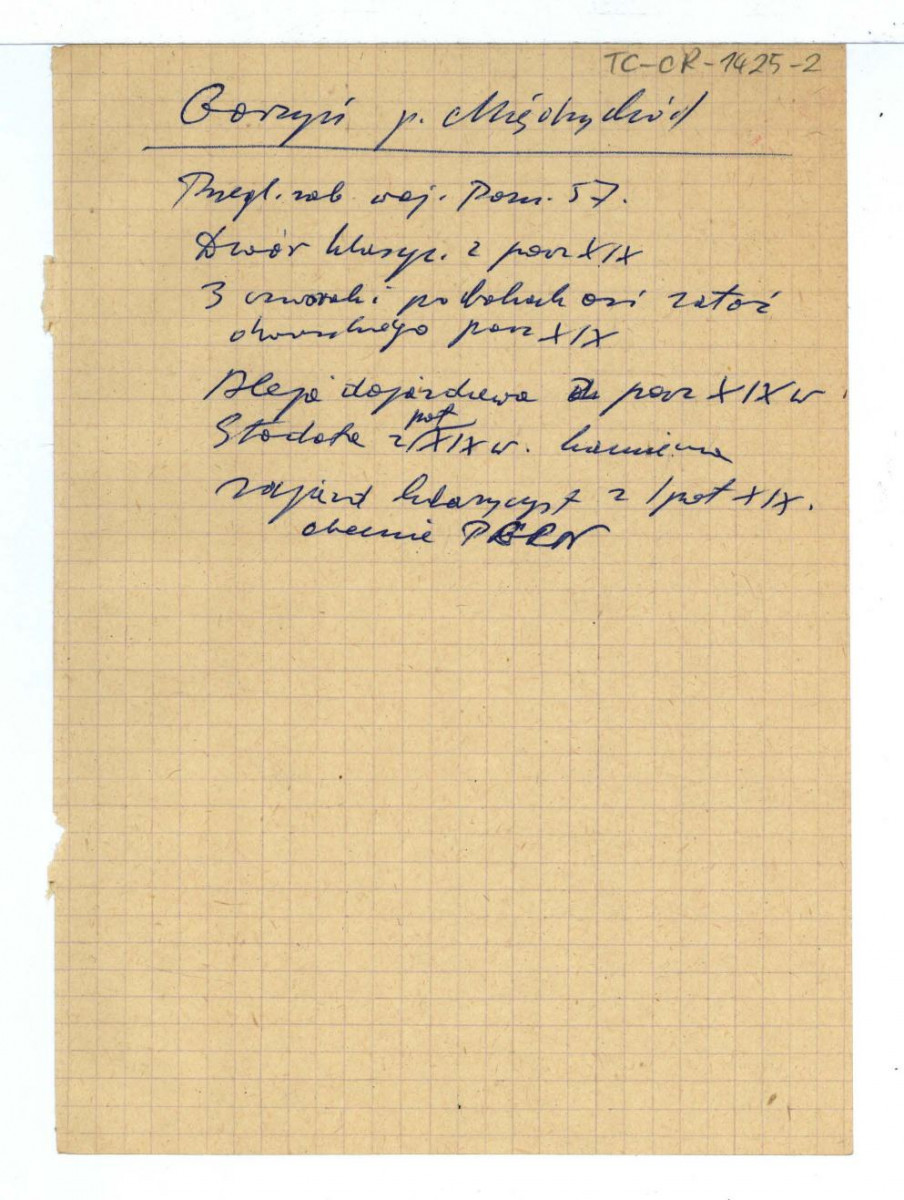 TC-CR-1425-2
Gorzyń p. Międzychód
Przegl. zab. woj. Pozn. 57.
Dwór klasyc. z pocz XIX
3 czworaki po bokach osi założ
dworskiego pocz XIX
Aleja dojazdowa pocz XIX w.
Stodoła z poł XIX w. kamienna
zajazd klasycyst z 1 poł XIX.
obecnie